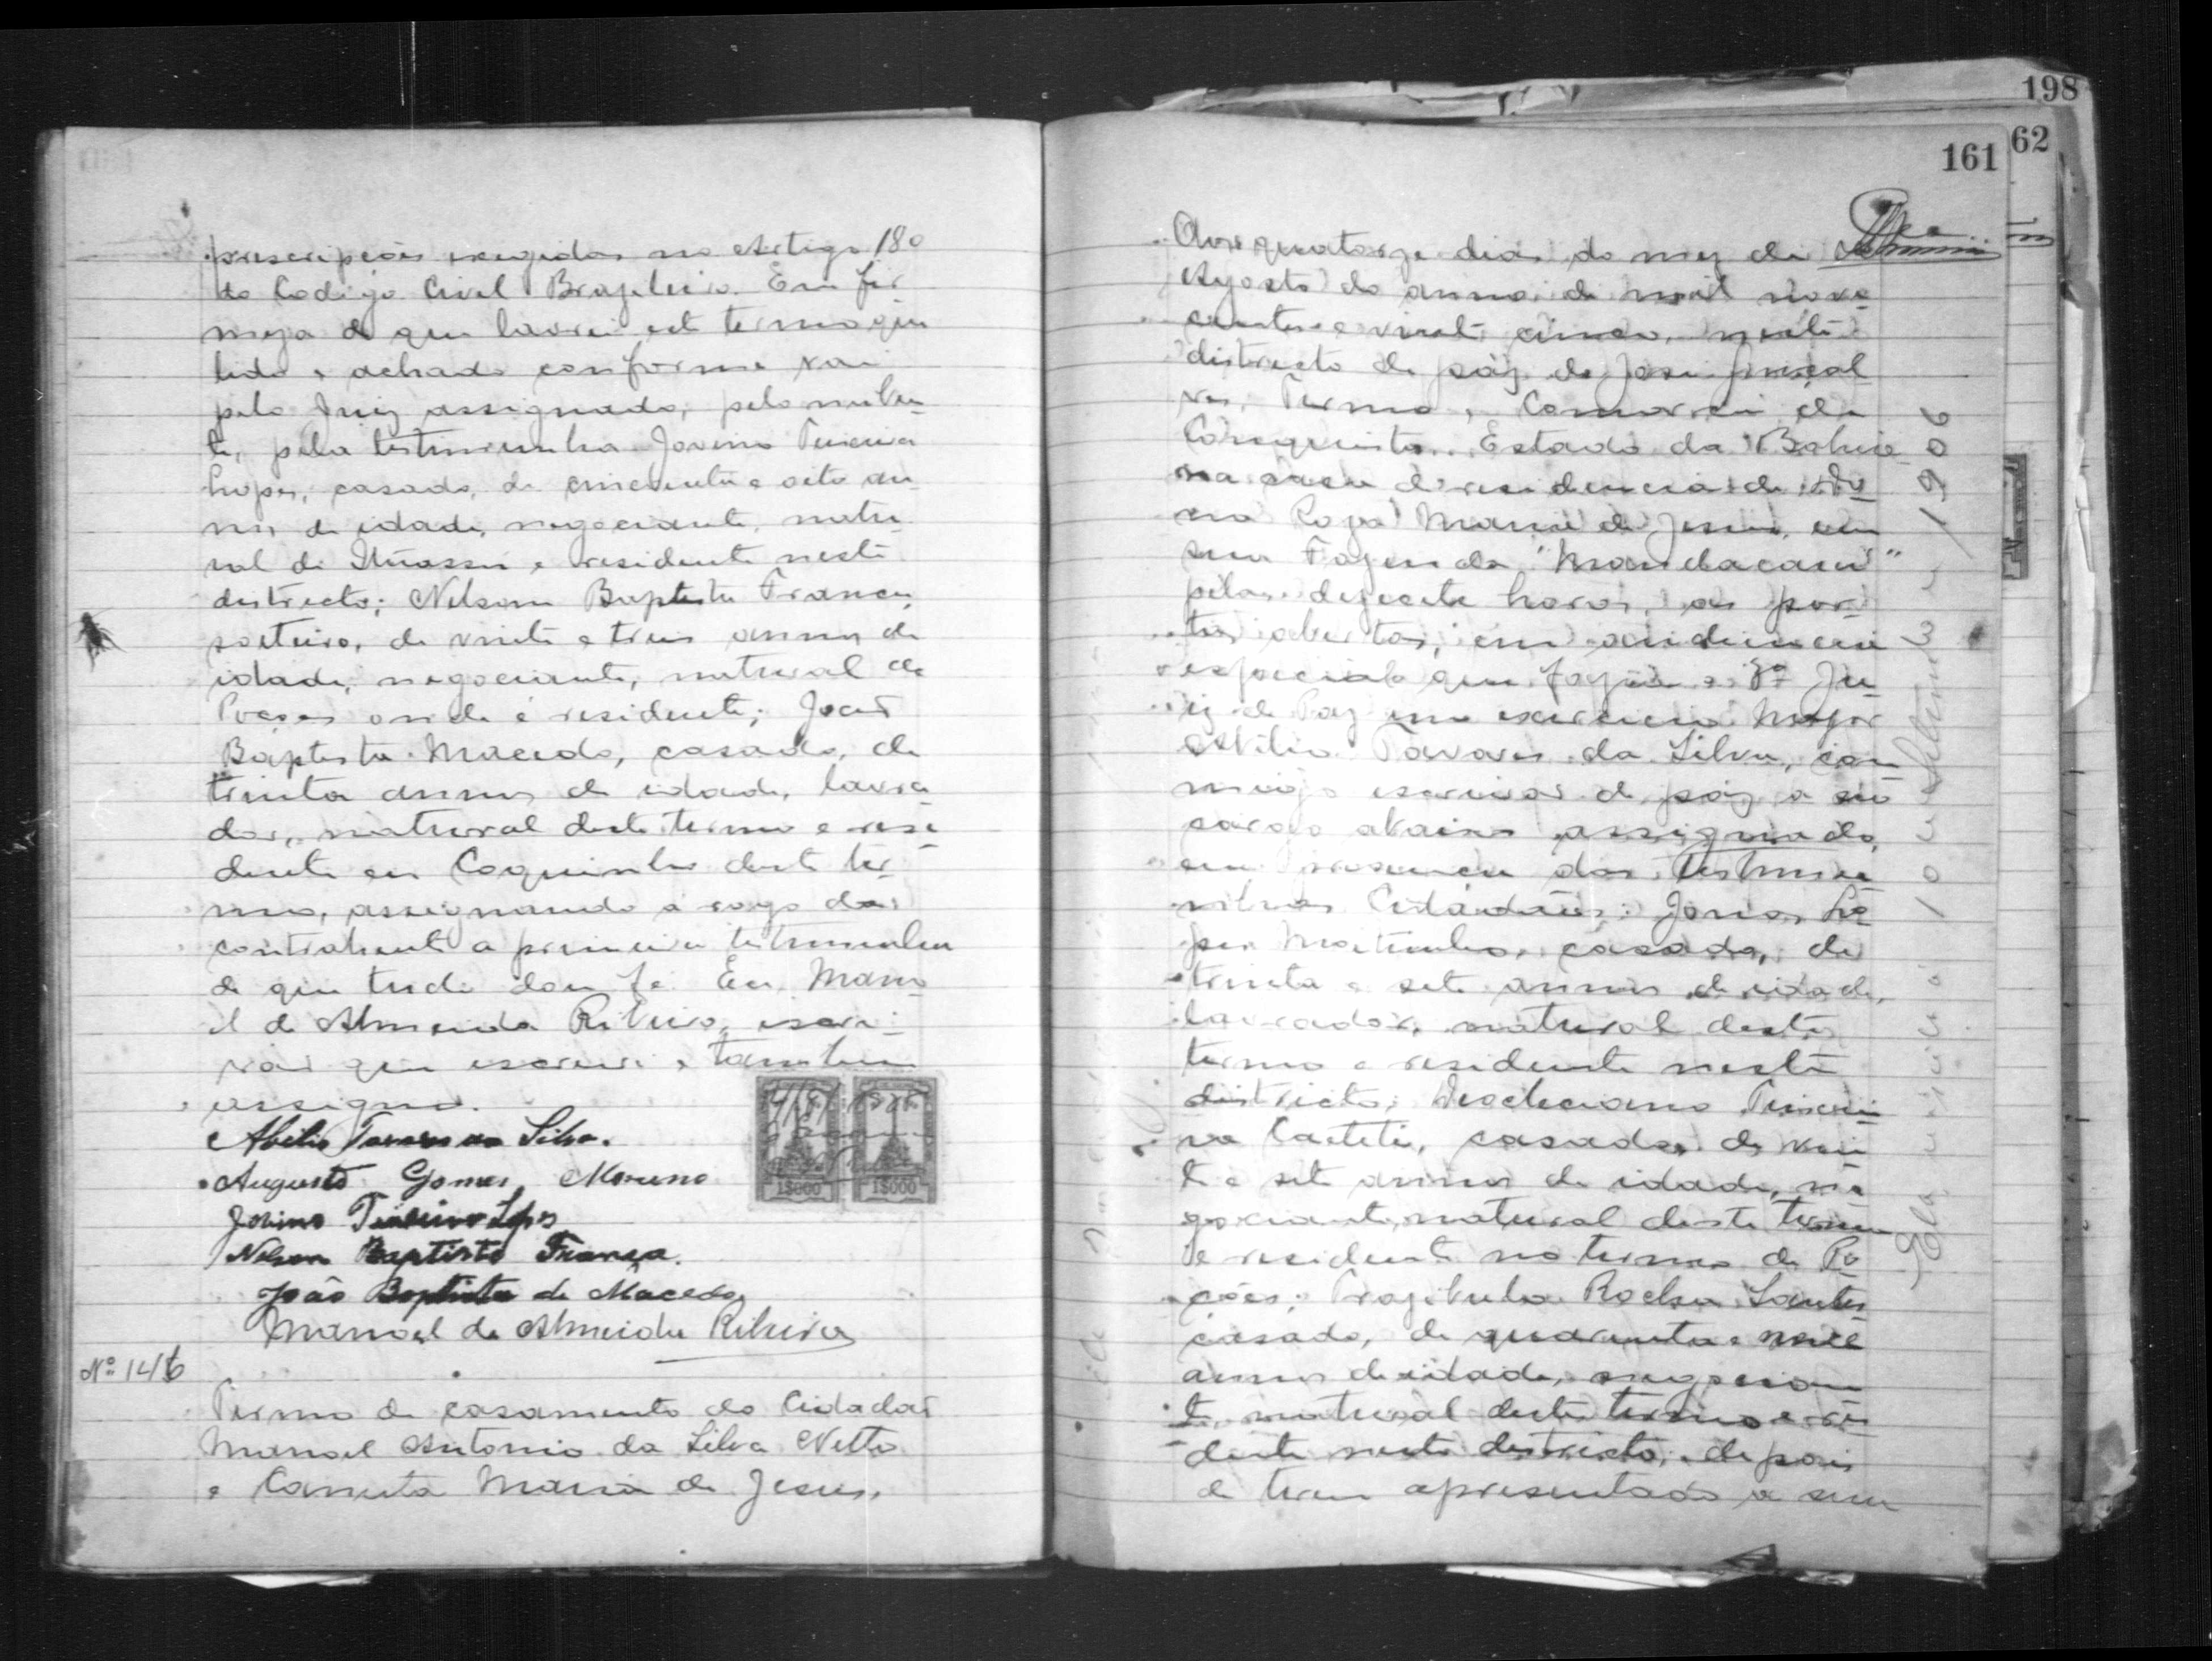 prescripções exegidas no Artigo 180
do Codigo Civel Brazileiro. Em fir
meza do que lavrei este termo que
lido e achado conforme vai
pelo Juiz assignado, pelo nuben
te, pela testimunha Jovino Teixeira
Lopes, casado, de cincoenta e oito an
nos de idade, negociante, natu
ral de Ituassú e residente neste
districto; Nelson Baptista França,
solteiro, de vinte e tres annos de
idade, negociante, natural de
Poções onde é residente; João
Baptista Macedo, casado, de
trinta annos de idade, lavra
dor, natural deste termo e resi
dente em Coquinho deste ter
mo, assignando a rogo da
contrahente a primeira testimunha
de que tudo dou fé. Eu, Mano
el de Almeida Ribeiro, escri
vão que escrevi e tambem
assigno.
Abilio Tavares da Silva.
Augusto Gomes Moreno
Jovino Teixeira Lopes
Nelson Baptista França.
João Baptista de Macedo
Manoel de Almeida Ribeiro
1$000 1$000
Nº 146
Termo de casamento do Cidadão
Manoel Antonio da Silva Netto
e Canuta Maria de Jesus.
198
62
161
Aos quatorze dias do mez de
Agosto do anno de mil nove
centos e vinte cinco, neste
districto de paz de José Gonçal
ves, Termo e Comarca da
Conquista, Estado da Bahia
na casa de residencia de Do
na Roza Maria de Jesus, em
sua Fazenda "Mandacarú"
pelas dezecete horas, as por
tas abertas, em audiencia
especial que fazia o Jú
iz de Paz em exercicio Major
Abilio Tavares da Silva, com
migo escrivão de paz a seu
cargo abaixo assignado,
em presença das testimu
nhas Cidadãos: Jonas Lo
pes Moitinho, casado, de
trinta e sete annos de idade,
lavrador, natural deste
termo e residente neste
districto; Deocleciano Teixei
ra Caeteté, casado, de vin
te e sete annos de idade, ne
gociante, natural deste termo
e residente no termo de Po
ções; Trazibulo Rocha Santos
casado, de quarenta e nove
annos de idade, negocian
te, natural deste termo e resi
dente neste districto, depois
de terem apresentado a seu
Ela nasceu á 10 de Setembro de 1906